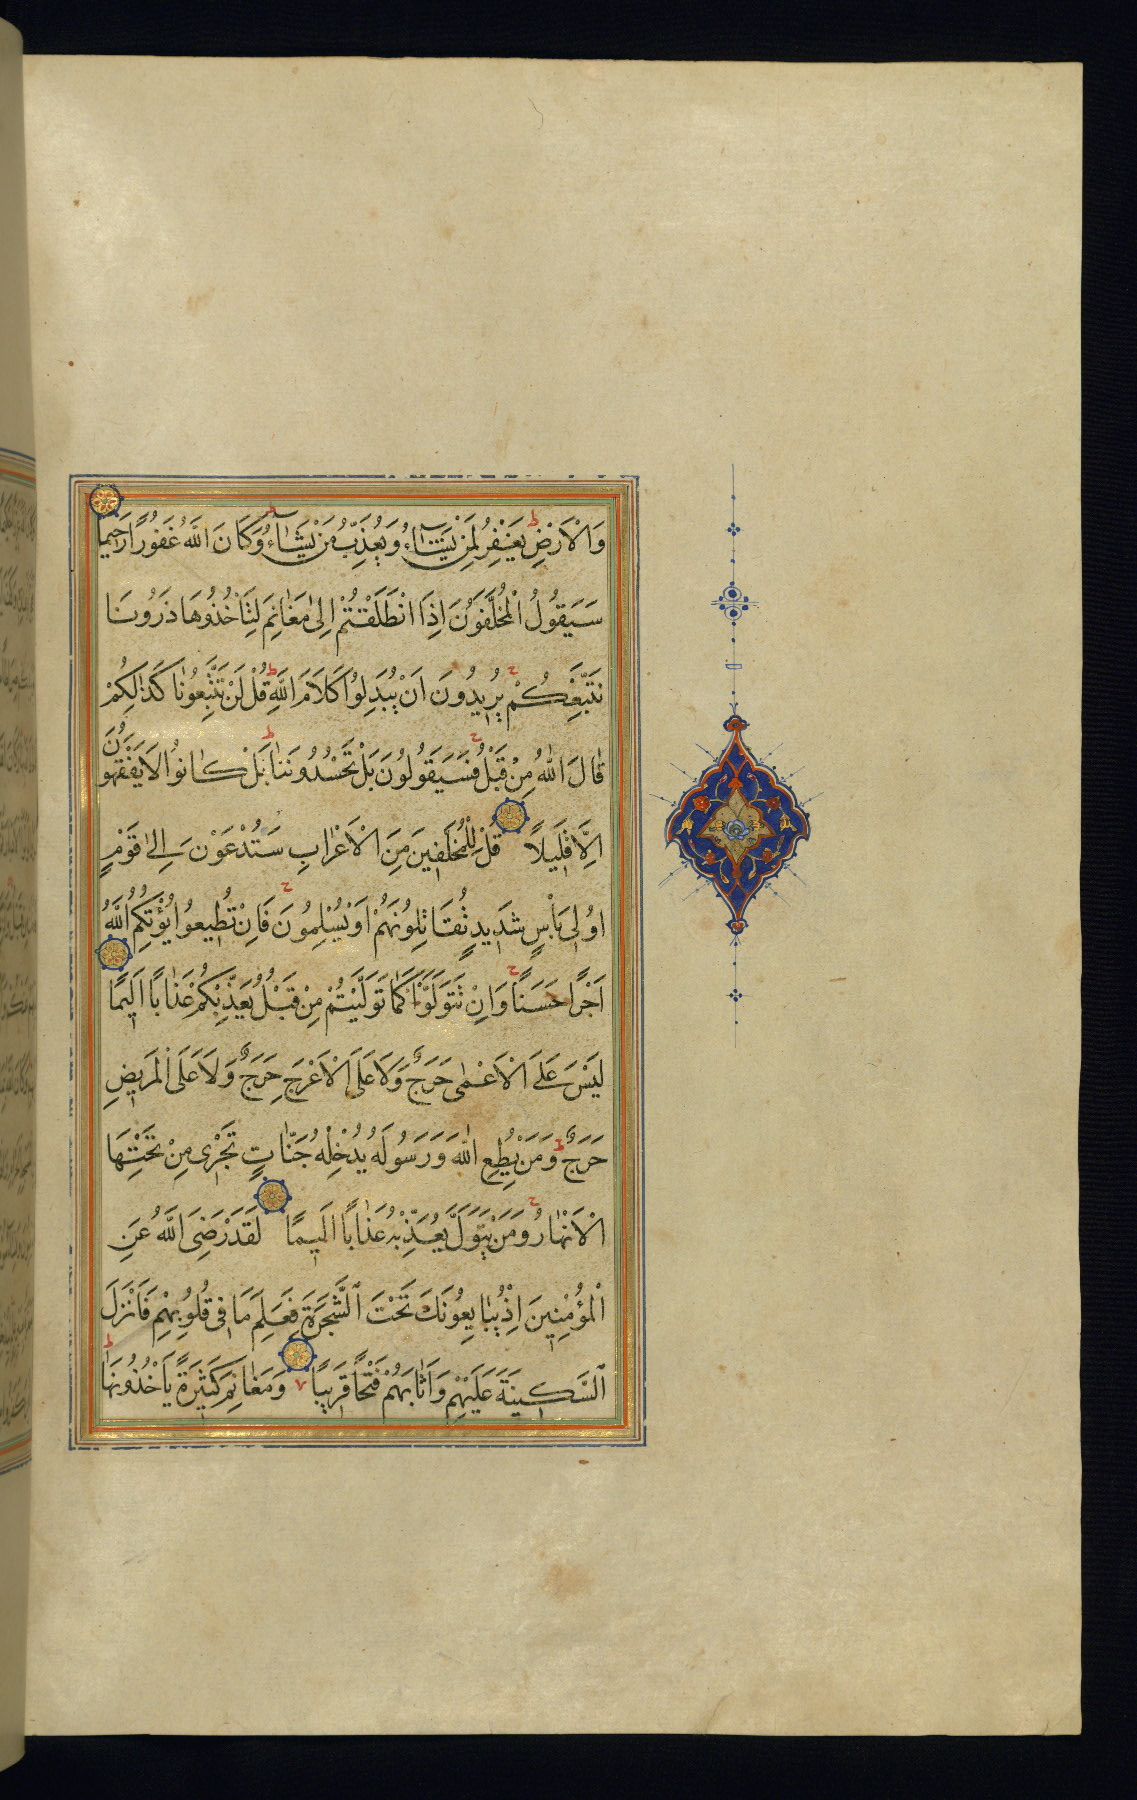 وَالْاَرْضِ يَغْفِرُ لِمَنْ يَشَاءُ وَيُعَذِّبُ مَنْ يَشَاءُ وَكَانَ اللّٰهُ غَفُورًا رَحِيمًا
سَيَقُولُ الْمُخَلَّفُونَ اِذَا انْطَلَقْتُمْ اِلٰى مَغَانِمَ لِتَأْخُذُوهَا ذَرُونَا
نَتَّبِعْكُمْ يُرِيدُونَ اَنْ يُبَدِّلُوا كَلَامَ اللّٰهِ قُلْ لَنْ تَتَّبِعُونَا كَذٰلِكُمْ
قَالَ اللّٰهُ مِنْ قَبْلُ فَسَيَقُولُونَ بَلْ تَحْسُدُونَنَا بَلْ كَانُوا لَا يَفْقَهُونَ
اِلَّا قَلِيلًا قُلْ لِلْمُخَلَّفِينَ مِنَ الْاَعْرَابِ سَتُدْعَوْنَ اِلٰى قَوْمٍ
اُولِى بَأْسٍ شَدِيدٍ تُقَاتِلُونَهُمْ اَوْ يُسْلِمُونَ فَاِنْ تُطِيعُوا يُؤْتِكُمُ اللّٰهُ
اَجْرًا حَسَنًا وَاِنْ تَتَوَلَّوْا كَمَا تَوَلَّيْتُمْ مِنْ قَبْلُ يُعَذِّبْكُمْ عَذَابًا اَلِيمًا
لَيْسَ عَلَى الْاَعْمٰى حَرَجٌ وَلَا عَلَى الْاَعْرَجِ حَرَجٌ وَلَا عَلَى الْمَرِيضِ
حَرَجٌ وَمَنْ يُطِعِ اللّٰهَ وَرَسُولَهُ يُدْخِلْهُ جَنَّاتٍ تَجْرِى مِنْ تَحْتِهَا
الْاَنْهَارُ وَمَنْ يَتَوَلَّ يُعَذِّبْهُ عَذَابًا اَلِيمًا لَقَدْ رَضِىَ اللّٰهُ عَنِ
الْمُؤْمِنِينَ اِذْ يُبَايِعُونَكَ تَحْتَ الشَّجَرَةِ فَعَلِمَ مَا فِى قُلُوبِهِمْ فَاَنْزَلَ
السَّكِينَةَ عَلَيْهِمْ وَاَثَابَهُمْ فَتْحًا قَرِيبًا وَمَغَانِمَ كَثِيرَةً يَأْخُذُونَهَا